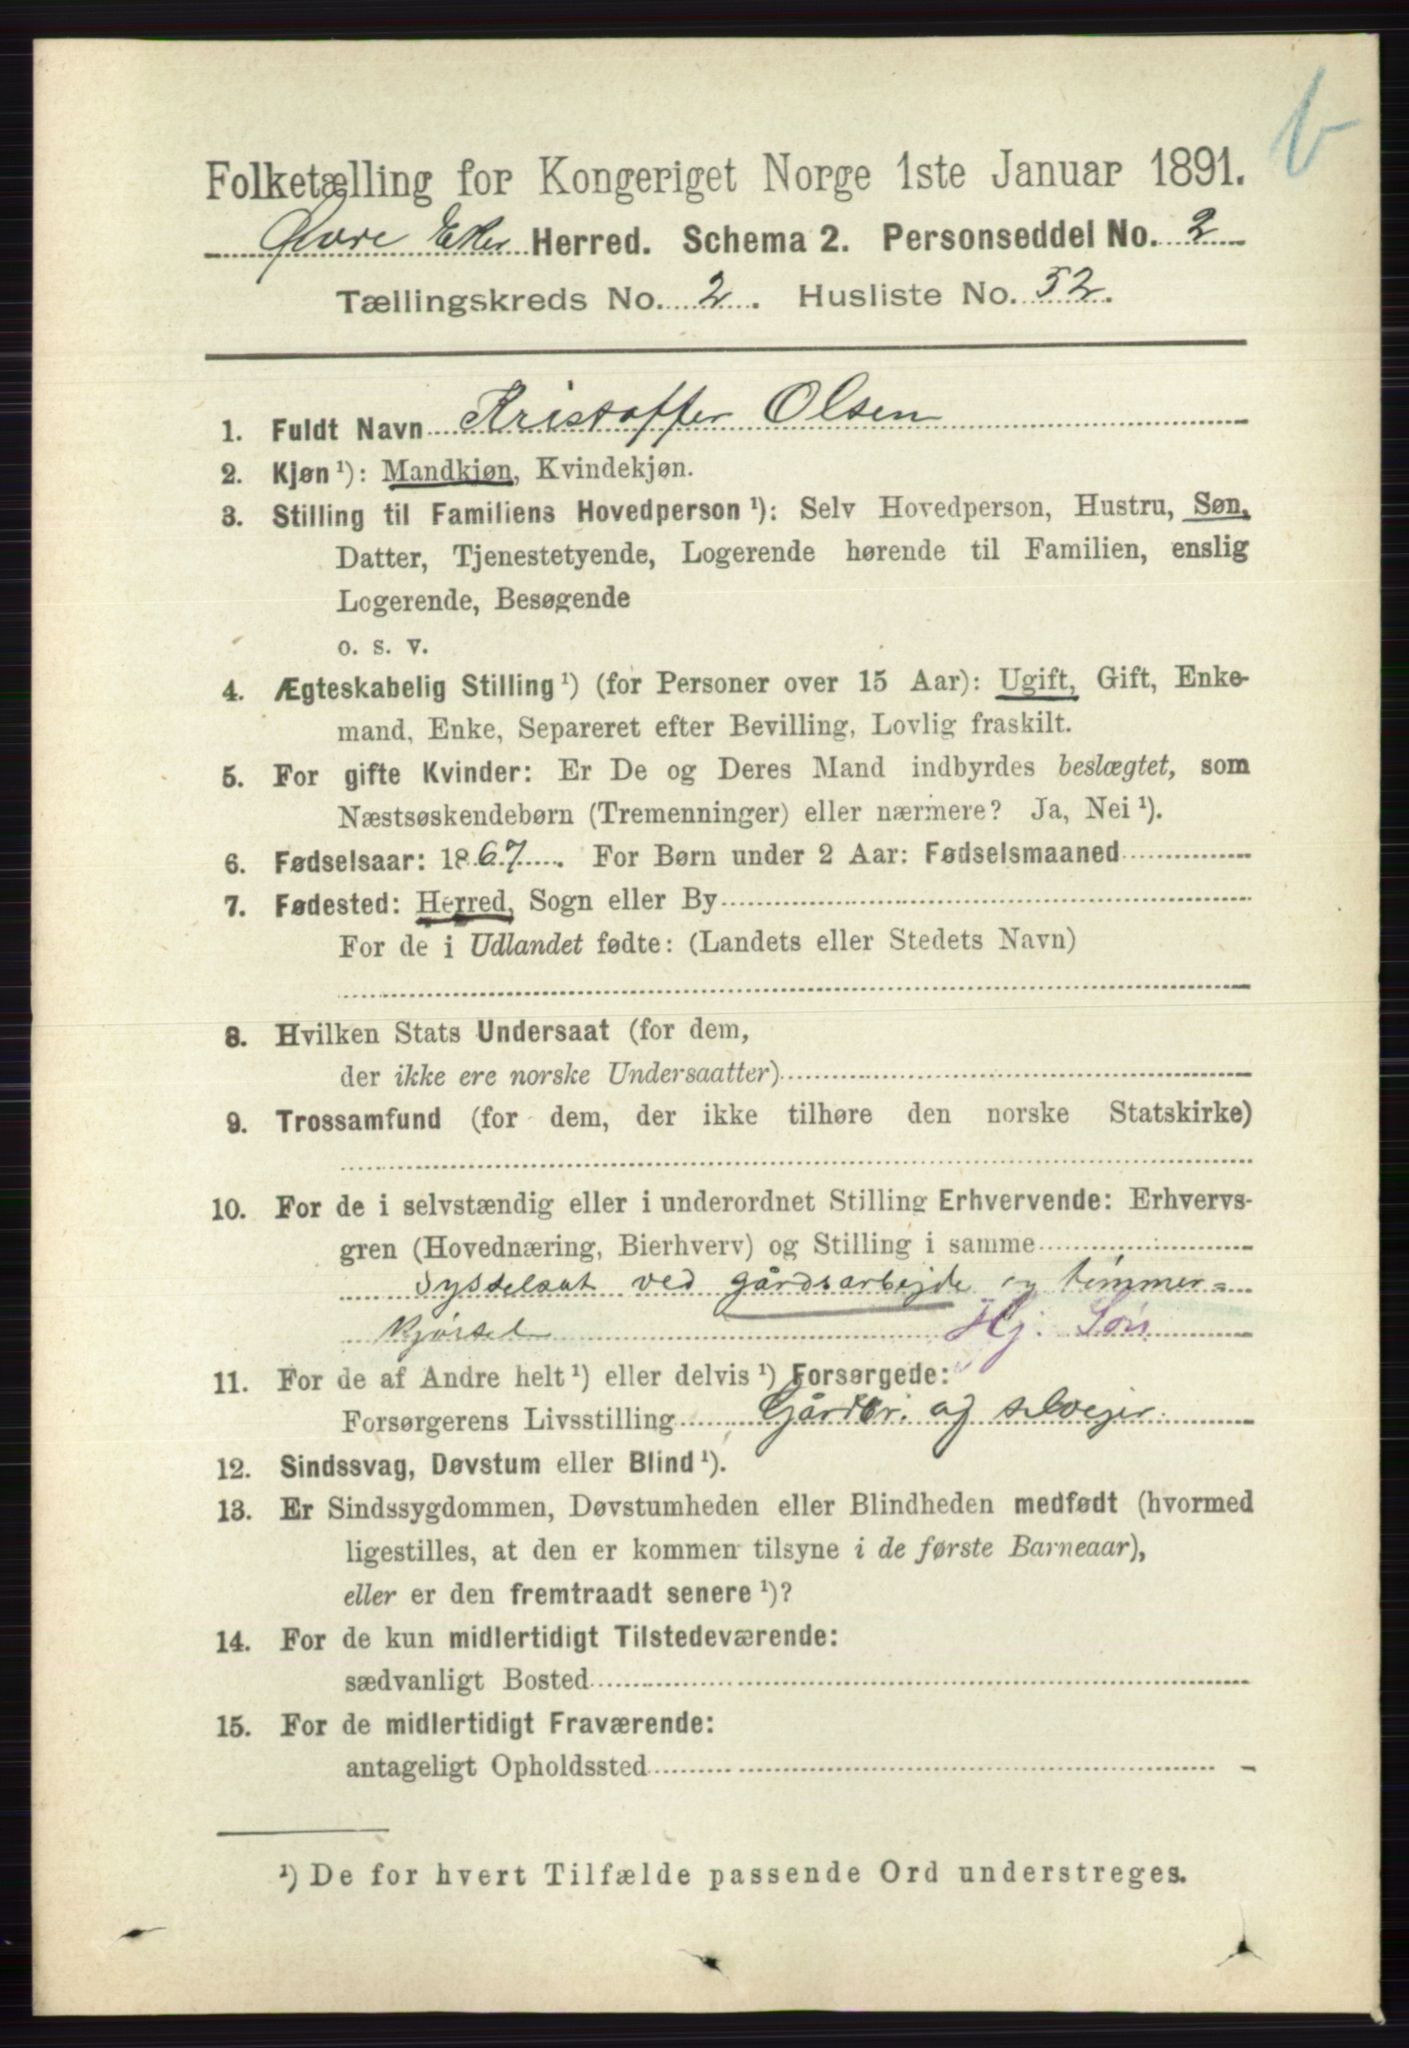 Folketælling for Kongeriget Norge 1ste Januar 1891.
Øvre Eker Herred. Schema 2. Personseddel No. 2
Tællingskreds No. 2. Husliste No. 52.
1. Fuldt Navn Kristoffer Olsen
2. Kjøn ¹): Mandkjøn, Kvindekjøn.
3. Stilling til Familiens Hovedperson ¹): Selv Hovedperson, Hustru, Søn,
Datter, Tjenestetyende, Logerende hørende til Familien, enslig
Logerende, Besøgende
o. s. v.
4. Ægteskabelig Stilling ¹) (for Personer over 15 Aar): Ugift, Gift, Enke-
mand, Enke, Separeret efter Bevilling, Lovlig fraskilt.
5. For gifte Kvinder: Er De og Deres Mand indbyrdes beslægtet, som
Næstsøskendebørn (Tremenninger) eller nærmere? Ja, Nei ¹).
6. Fødselsaar: 1867. For Børn under 2 Aar: Fødselsmaaned
7. Fødested: Herred, Sogn eller By
For de i Udlandet fødte: (Landets eller Stedets Navn)
8. Hvilken Stats Undersaat (for dem,
der ikke ere norske Undersaatter)
9. Trossamfund (for dem, der ikke tilhøre den norske Statskirke)
10. For de i selvstændig eller i underordnet Stilling Erhvervende: Erhvervs-
gren (Hovednæring, Bierhverv) og Stilling i samme
Sysselsat ved gårdsarbejde og tømmer=
kjørsel Hj. Søn
11. For de af Andre helt ¹) eller delvis ¹) Forsørgede:
Forsørgerens Livsstilling Gårdbr. og selvejer.
12. Sindssvag, Døvstum eller Blind ¹).
13. Er Sindssygdommen, Døvstumheden eller Blindheden medfødt (hvormed
ligestilles, at den er kommen tilsyne i de første Barneaar),
eller er den fremtraadt senere ¹)?
14. For de kun midlertidigt Tilstedeværende:
sædvanligt Bosted
15. For de midlertidigt Fraværende:
antageligt Opholdssted
¹) De for hvert Tilfælde passende Ord understreges.